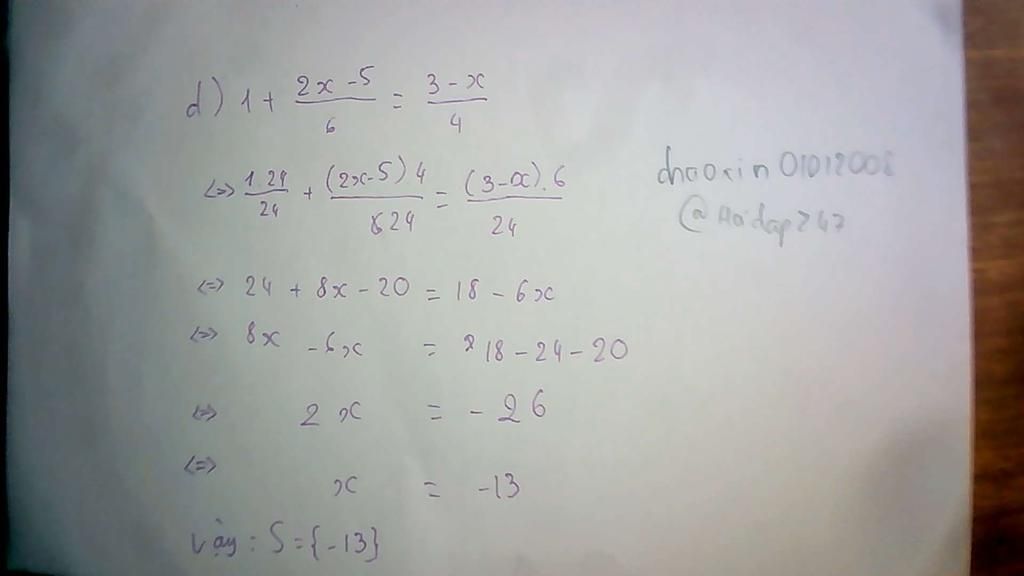 d) 1 + \frac{2x-5}{6} = \frac{3-x}{4}
<=> \frac{1.24}{24} + \frac{(2x-5)4}{24} = \frac{(3-x).6}{24}
chaoxin01012008
@Hoidap247
<=> 24 + 8x - 20 = 18 - 6x
<=> 8x - 6x = 18 - 24 - 20
<=> 2x = -26
<=> x = -13
Vậy : S = {-13}